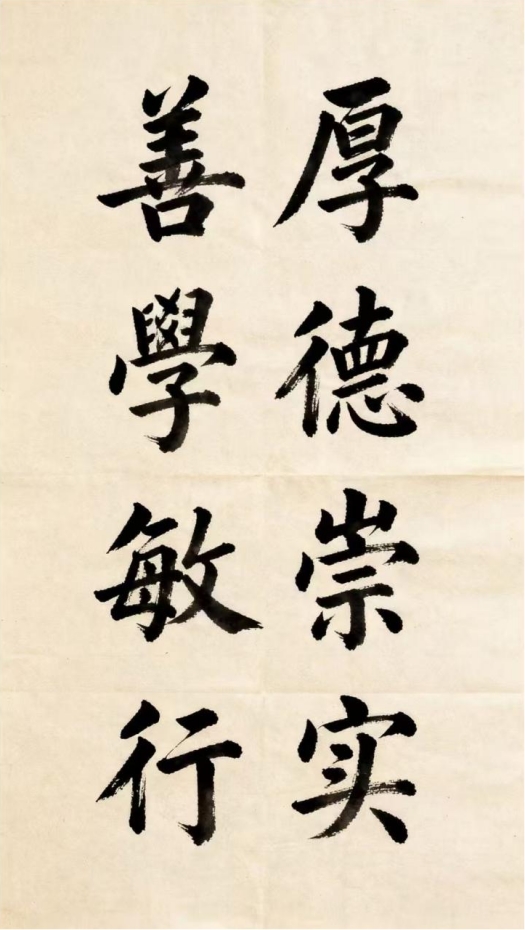 厚德崇实
善學敏行